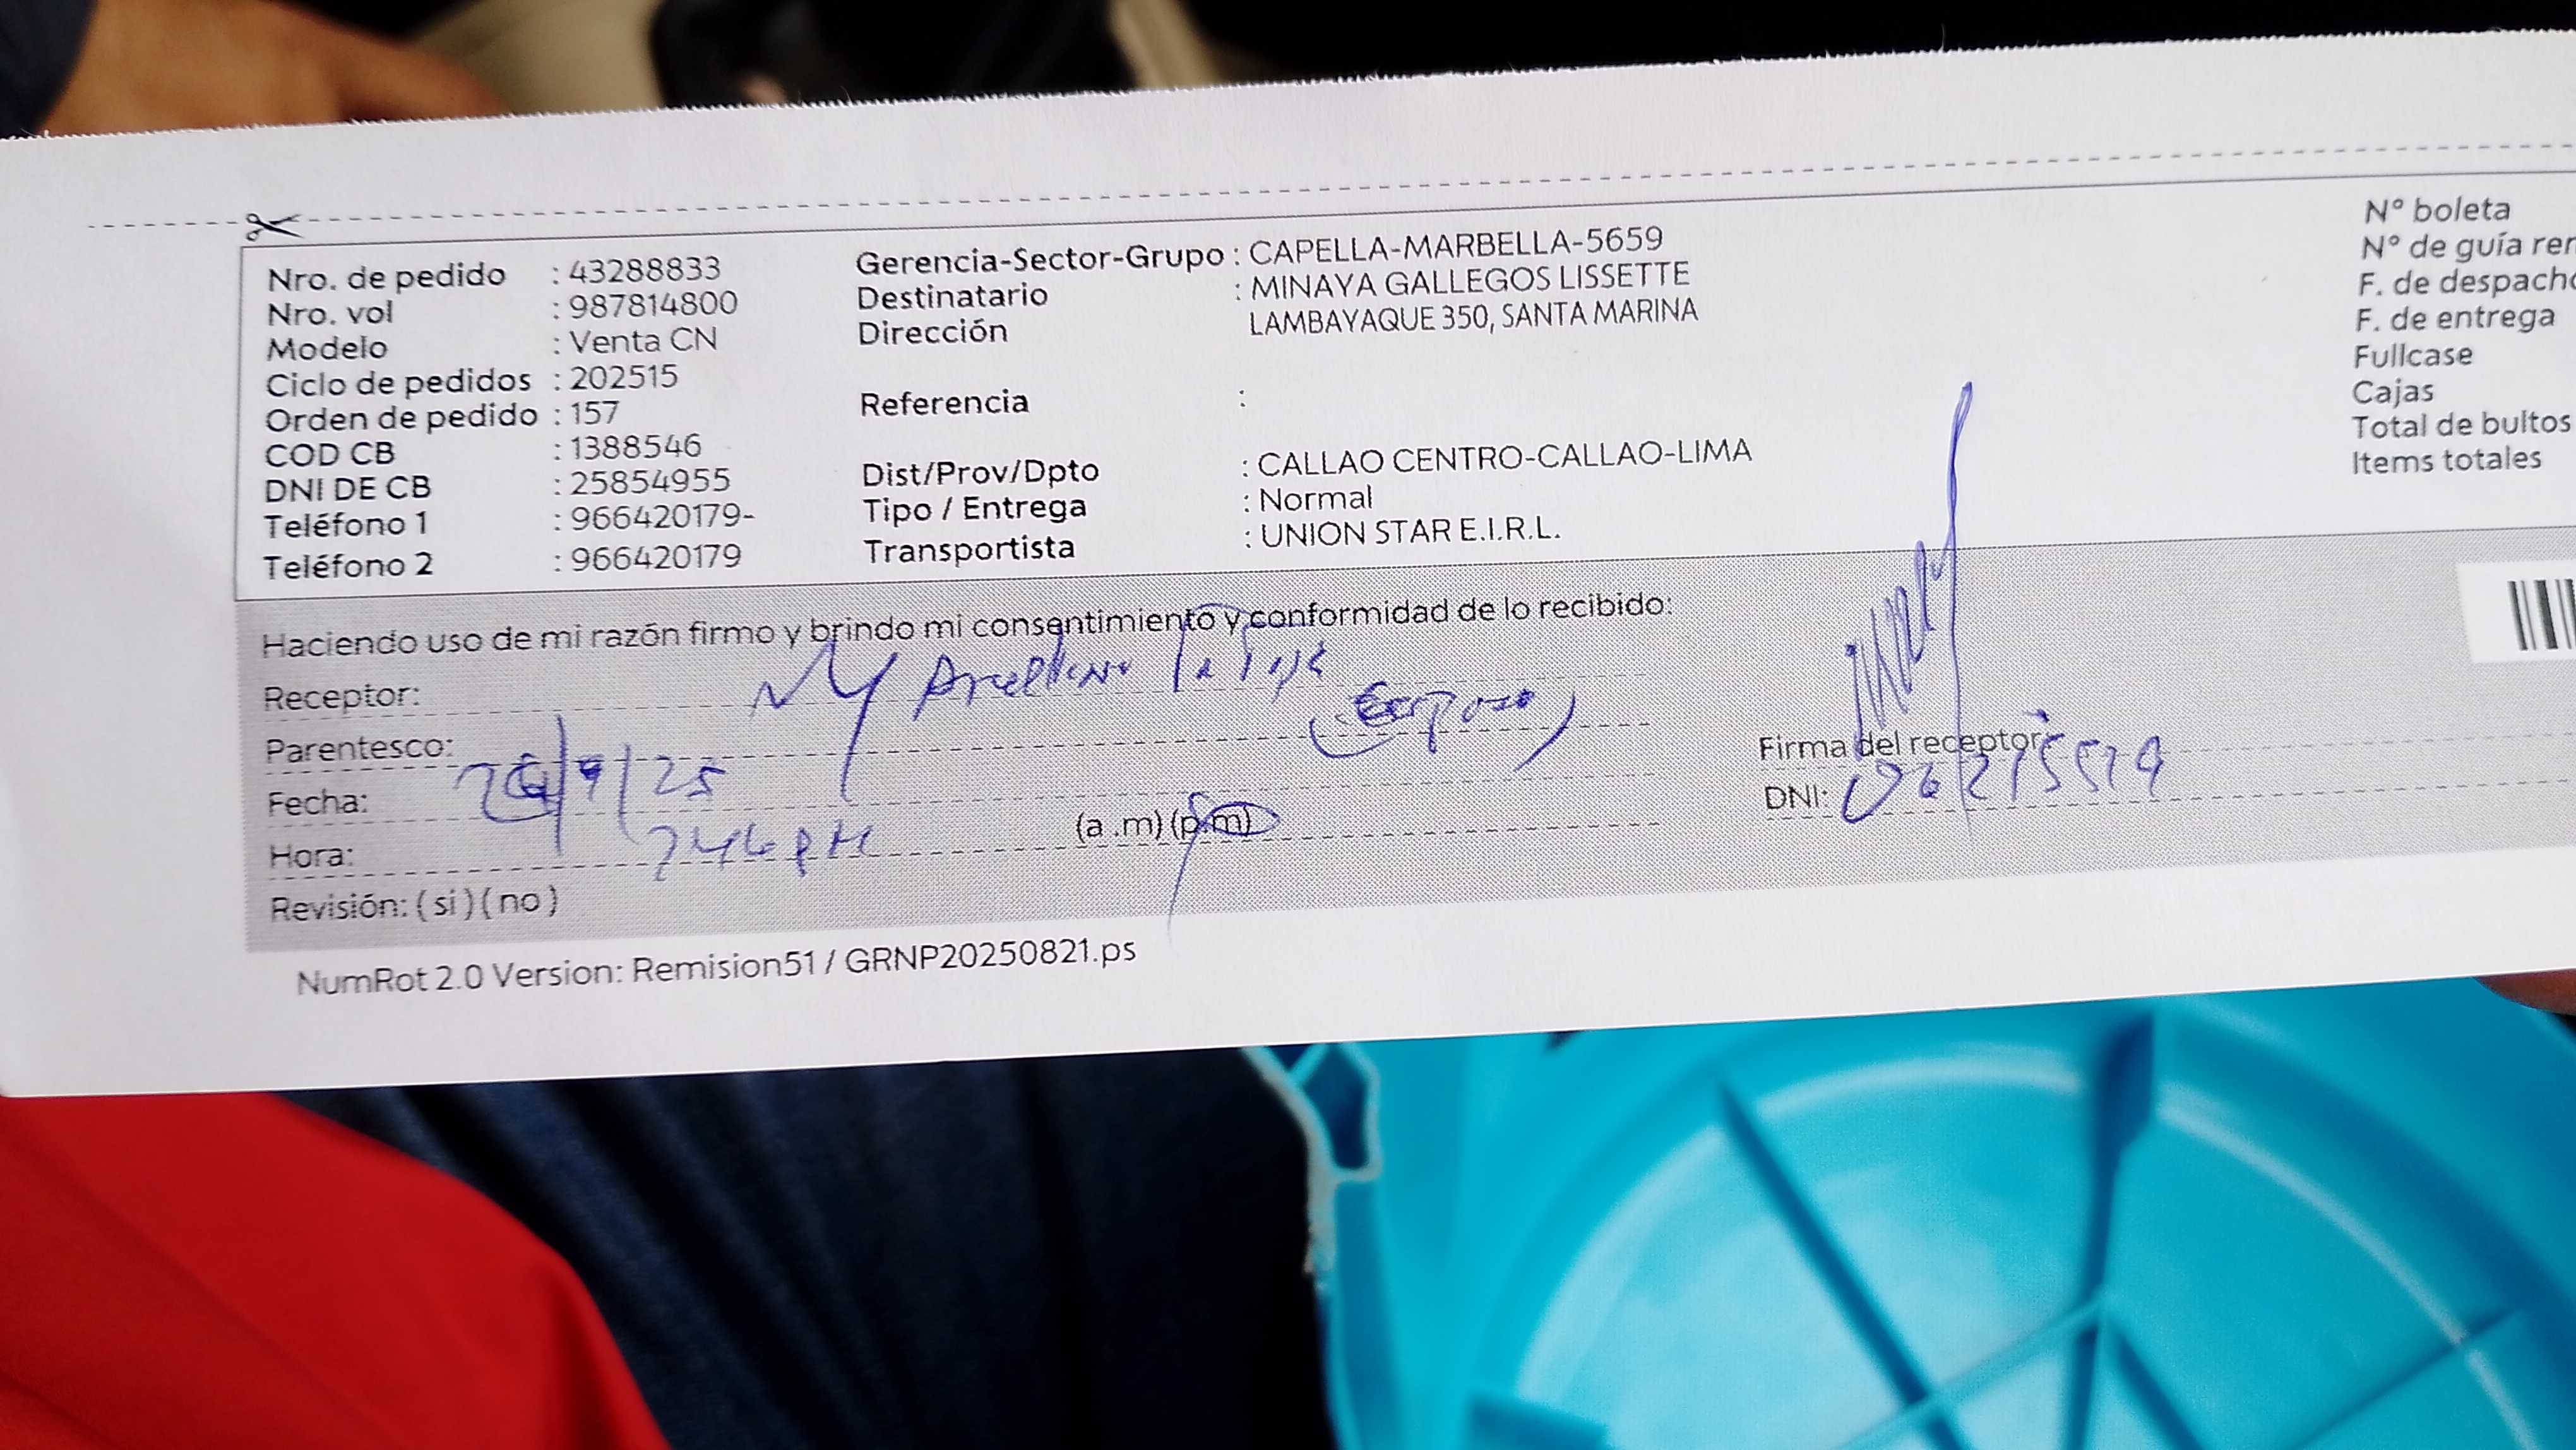 Nro. de pedido : 43288833
Nro. vol : 987814800
Modelo : Venta CN
Ciclo de pedidos : 202515
Orden de pedido : 157
COD CB : 1388546
DNI DE CB : 25854955
Teléfono 1 : 966420179-
Teléfono 2 : 966420179
Gerencia-Sector-Grupo : CAPELLA-MARBELLA-5659
Destinatario : MINAYA GALLEGOS LISSETTE
Dirección LAMBAYAQUE 350, SANTA MARINA
Referencia :
Dist/Prov/Dpto : CALLAO CENTRO-CALLAO-LIMA
Tipo / Entrega : Normal
Transportista : UNION STAR E.I.R.L.
N° boleta
N° de guía rem
F. de despacho
F. de entrega
Fullcase
Cajas
Total de bultos
Items totales
Haciendo uso de mi razón firmo y brindo mi consentimiento y conformidad de lo recibido:
Receptor:
Parentesco: (Esposo)
Fecha: 26/9/25
Hora: 246 PM (a .m) (p.m)
Revisión: ( si ) ( no )
Firma del receptor
DNI:
NumRot 2.0 Version: Remision51 / GRNP20250821.ps